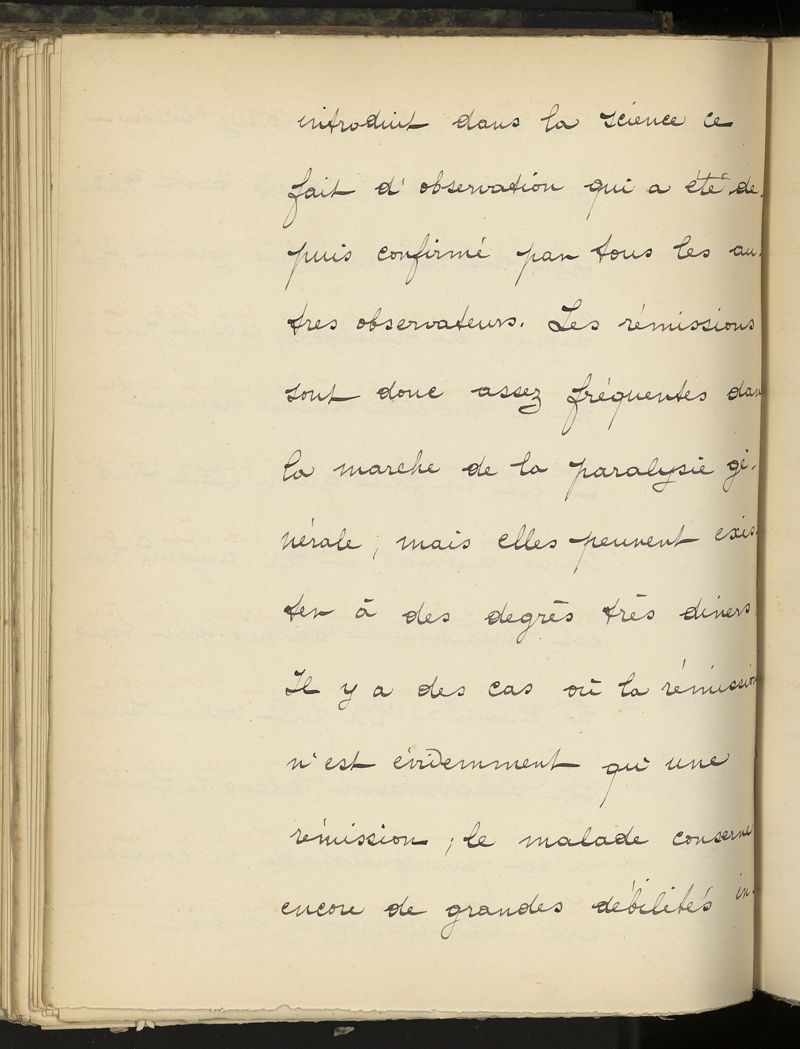 introduit dans la science ce
fait d'observation qui a été de-
puis confirmé par tous les au-
tres observateurs. Les rémissions
sont donc assez fréquentes dans
la marche de la paralysie gé-
nérale, mais elles peuvent exis-
ter à des degrés très divers
Il y a des cas où la rémission
n'est évidemment qu'une
rémission ; le malade conserve
encore de grandes débilités in-